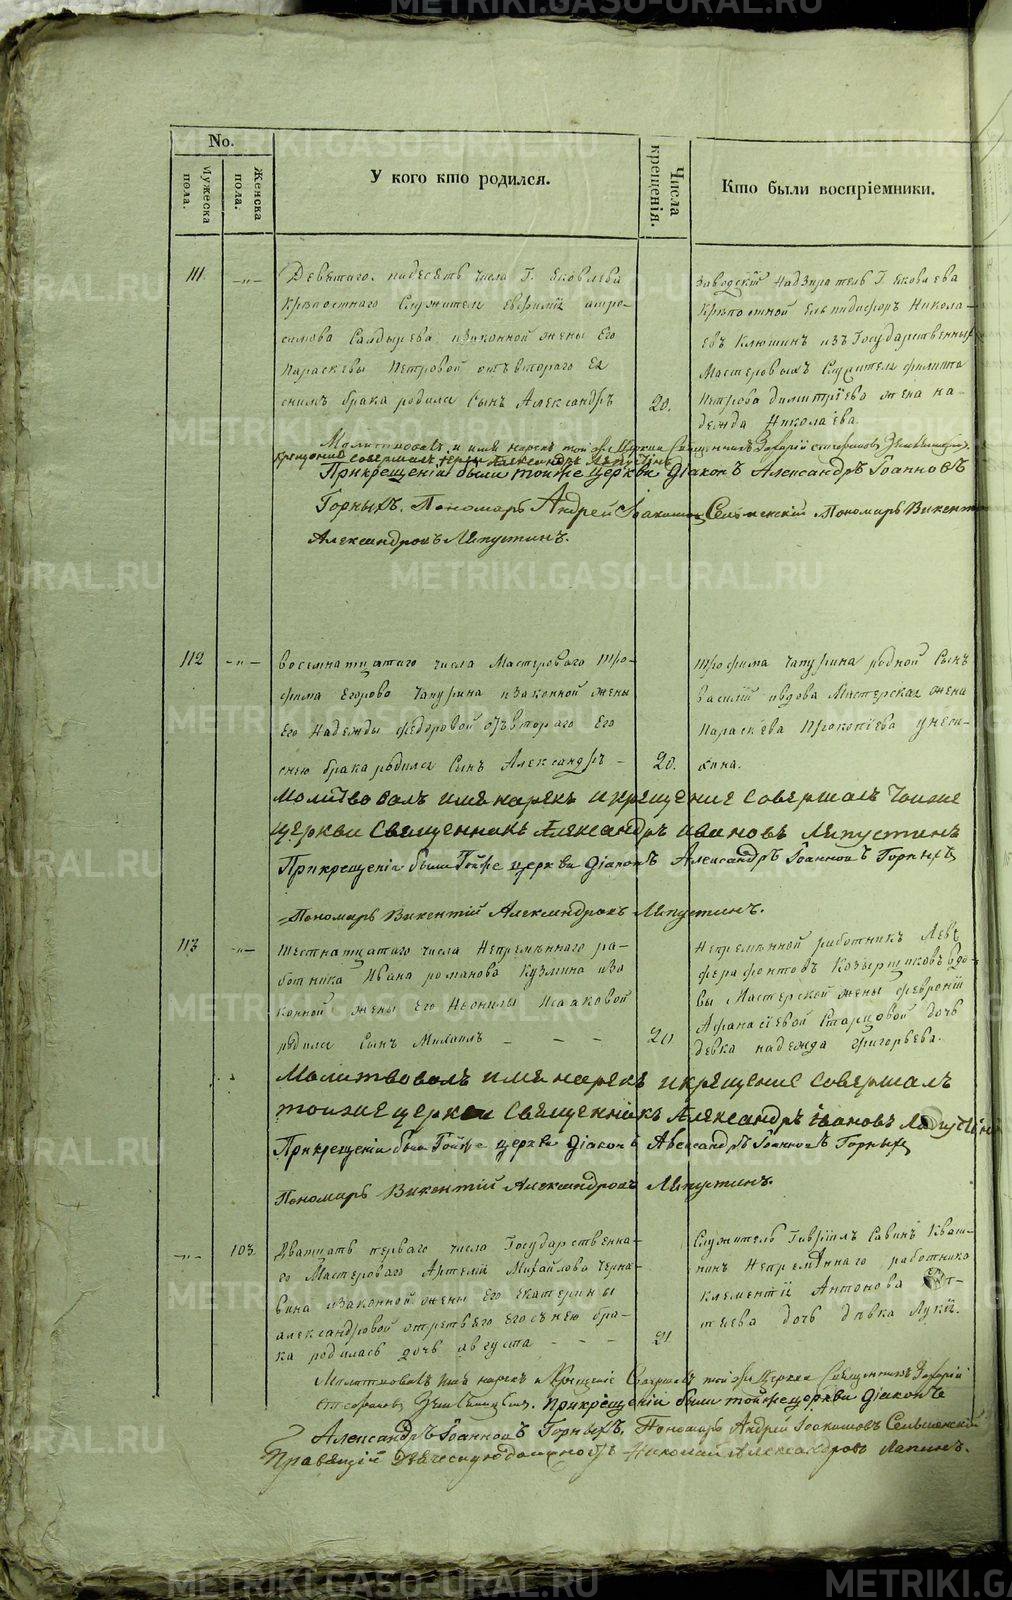 No.
Мужеска пола.
Женска пола.
У кого кто родился.
Числа крещенія.
Кто были воспріемники.
111 -„-
Деветаго надесеть числа Г. Яковлева
крѣпостнаго Служителя Евфимія
Салдырева изаконной жены Его
Параскевы Петровой отъ втораго Ея
снимъ брака родился Сынъ Александръ
20.
заводскій Надзиратель Г. Яковлева
Крѣпостной Елпидифоръ Никола-
евъ Клюшинъ изъ Государственныхъ
Мастеровыхъ Служителя Филиппа
Петрова Димитріева жена На-
дежда Николаева.
Молитвовалъ и имя нарекъ той же Церкви Священникъ Захарій Стефановъ
крещение совершалъ Александръ Ляпустинъ
При крещеніи были тойже церкви діаконъ Александръ Іоанновъ
Горныхъ. Пономарь Андрей Іоакимовъ Сельменскій Пономарь Викентій
Александровъ Ляпустинъ.
112 -„-
восемнатцатаго числа Мастероваго Тро-
фима Егорова Чапурина изаконной жены
Его Надежды Федоровой отъ втораго Его
снею брака родился Сынъ Александръ -
20.
Трофима Чапурина родной Сынъ
Василій ивдова Мастерская жена
Параскева Прокопіева
Молитвовалъ имя нарекъ и крещение совершалъ тойже
церкви Священникъ Александръ Ивановъ Ляпустинъ
При крещеніи были Тойже церкви діаконъ Александръ Іоанновъ Горныхъ
Пономарь Викентій Александровъ Ляпустинъ.
113 -„-
шестнатцатаго числа Непремѣннаго ра-
ботника Ивана Романова Кузмина иза
конной жены Его Неонилы Исааковой
родился Сынъ Михаилъ - - -
20
Непремѣнной работникъ Левъ
Ферафонтовъ Козырщиковъ вдо-
вы Мастерской жены Февроніи
Афанасіевой Старцовой дочь
девка Надежда Григорьева.
Молитвовалъ имя нарекъ и крещение совершалъ
тоиже церкви Священникъ Александръ Івановъ Ляпустинъ
При крещеніи были Тойже церкви діаконъ Александръ Іоанновъ Горныхъ
Пономарь Викентій Александровъ Ляпустинъ.
-„- 103
Дватцать перваго число Государственна-
го Мастероваго Артемія Михайлова Черна-
вина изаконной жены Его Екатерины
Александровой отретьего Его снею бра-
ка родилась дочь Августа - - -
21.
Служитель Гавріилъ Савинъ Кваш-
нинъ Непремѣннаго работника
Клементія Антонова
дочь дѣвка Лукія.
Молитвовалъ имя нарекъ и Крещеніе Совершалъ той же Церкви Священникъ Захарій
Стефановъ При крещеніи были тойже церкви діаконъ
Александръ Іоанновъ Горныхъ, Пономарь Андрей Іоакимовъ Сельменскій
Правящій Дьяческую должность Николай Александровъ Лапинъ.
METRIKI.GASO-URAL.RU